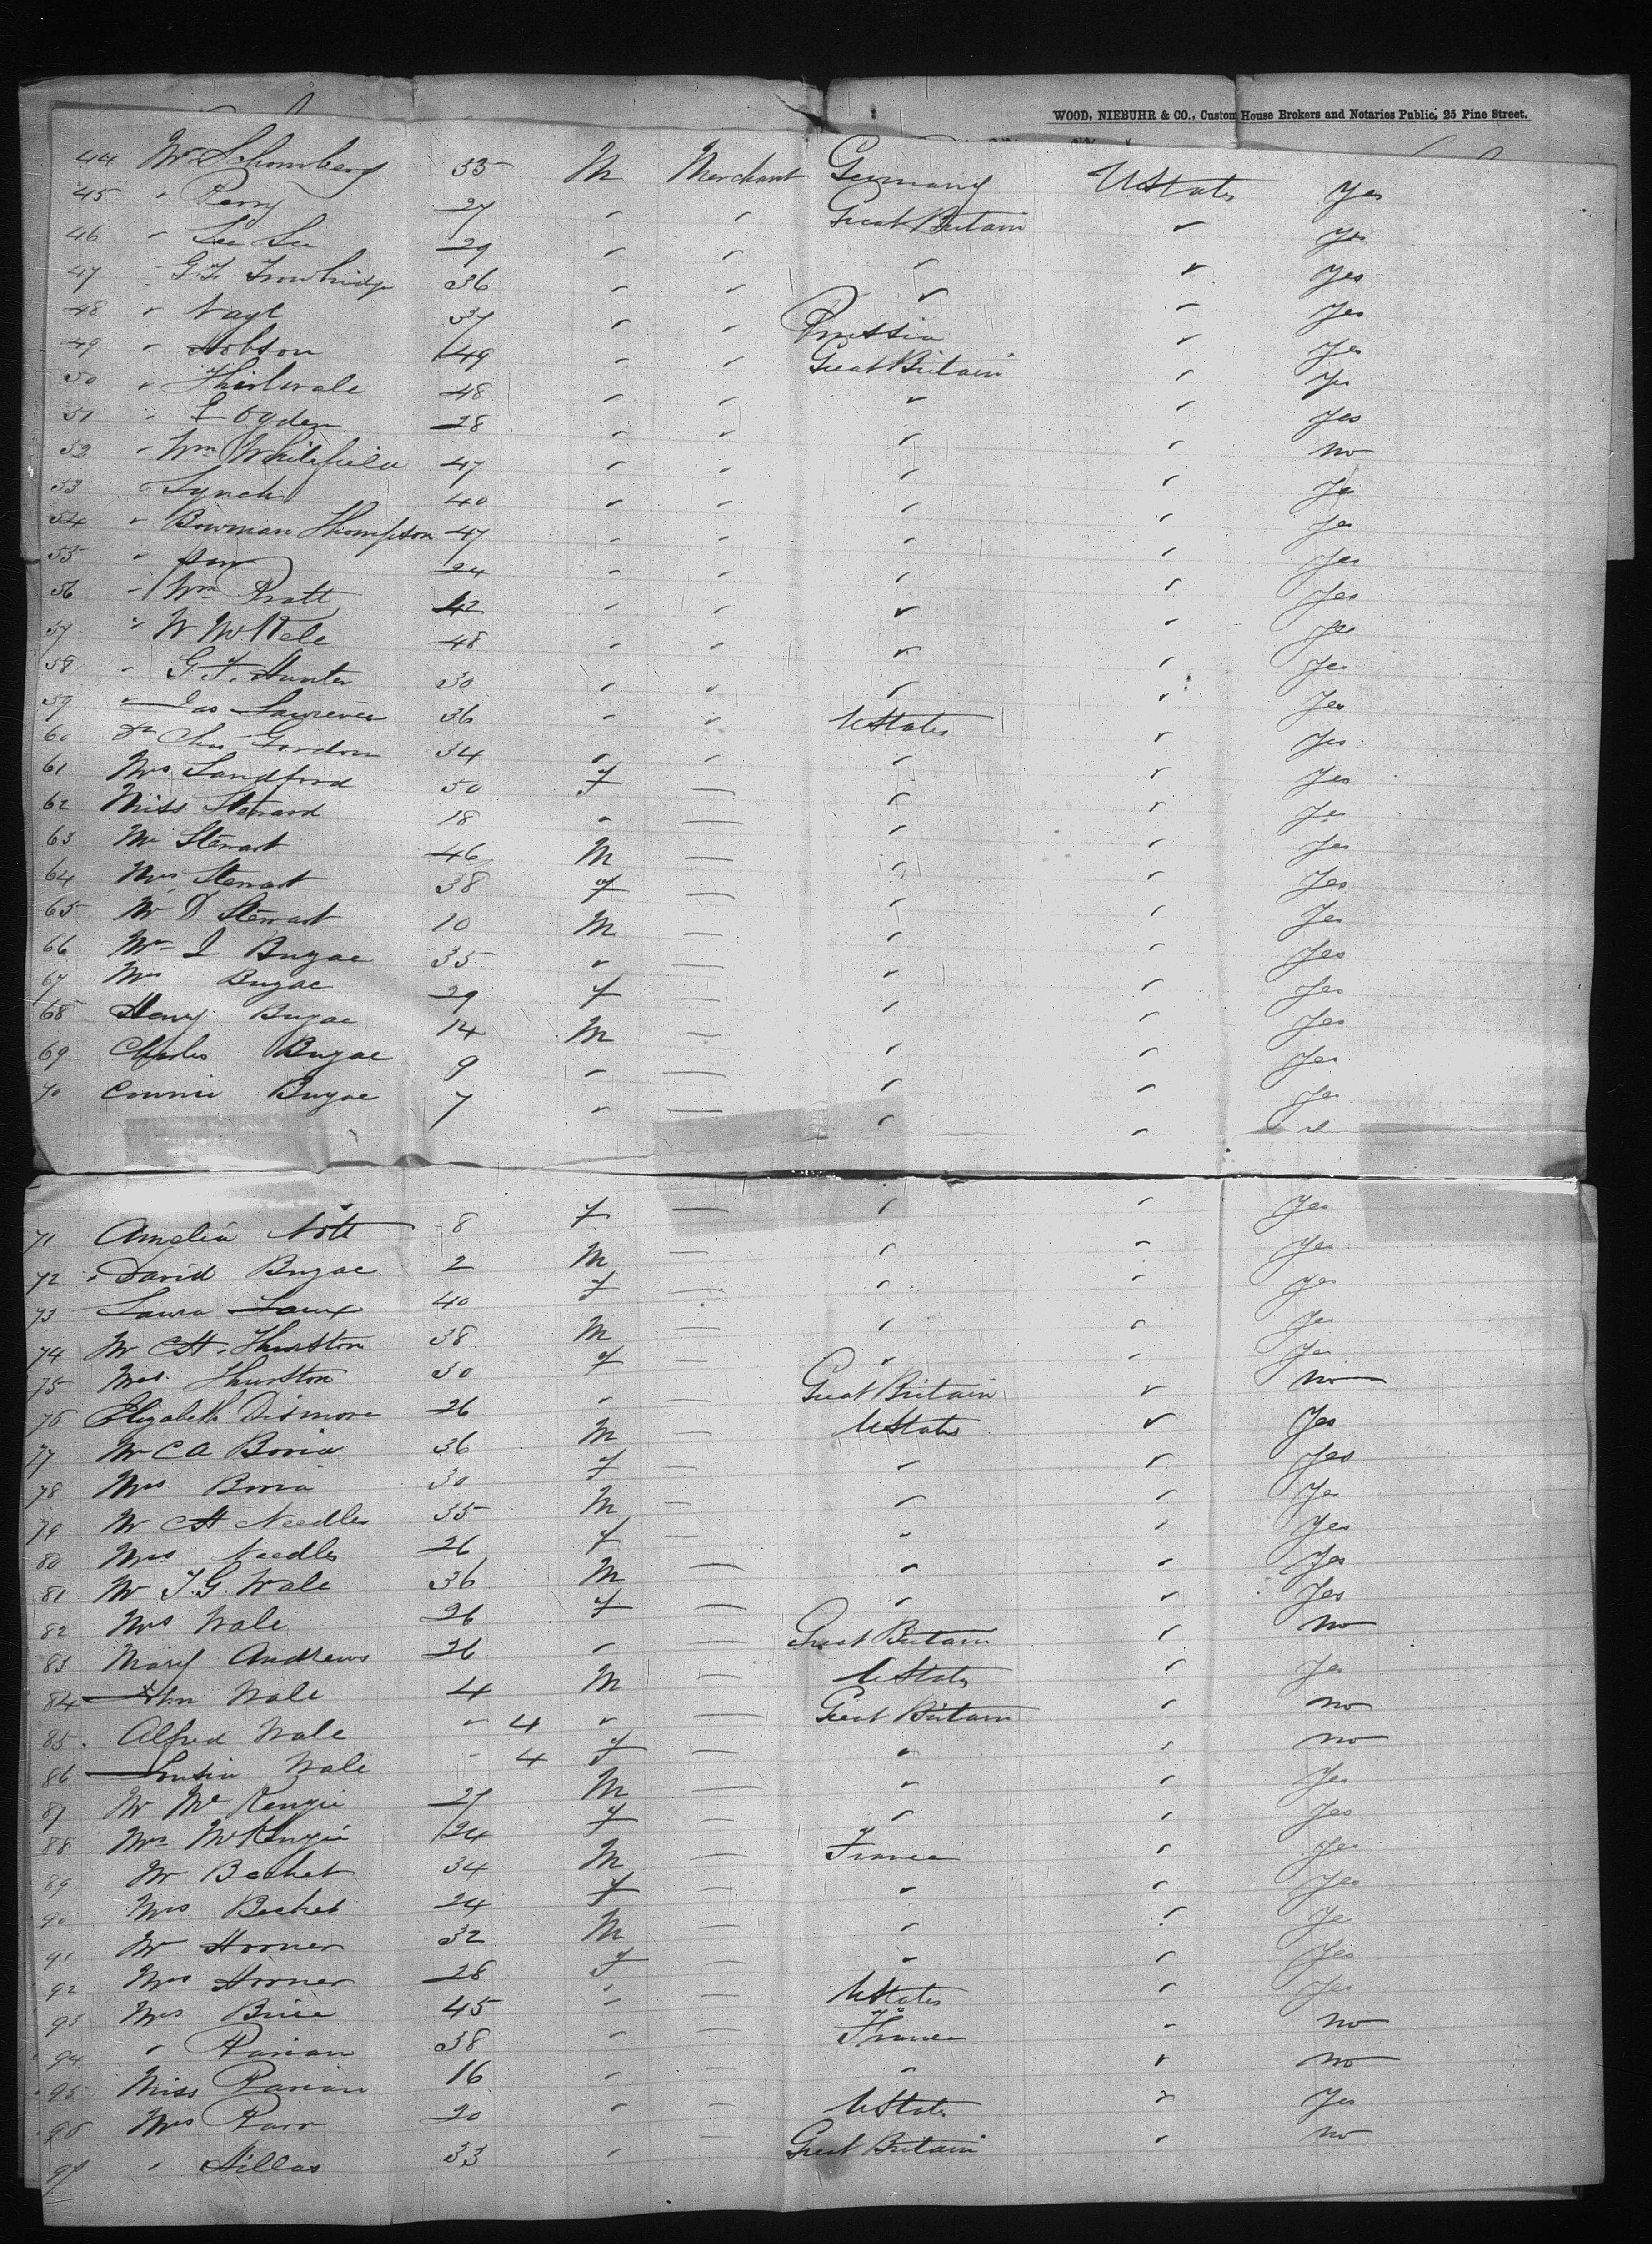 WOOD, NIEBUHR & CO., Custom House Brokers and Notaries Public, 25 Pine Street.
44 Mr Schomberg 35 M Merchant Germany UStates Yes
45 " Perry 27 " " Great Britain " Yes
46 " See See 29 " " " " Yes
47 " G.F. Trowbridge 36 " " " " Yes
48 " Nagl 37 " " Prussia " Yes
49 " Hobson 49 " " Great Britain " Yes
50 " 48 " " " " Yes
51 " Ogden 28 " " " " no
52 " Wm Whitefield 47 " " " " Yes
53 " Lynch 40 " " " " Yes
54 " Bowman Thompson 47 " " " " Yes
55 " 24 " " " " Yes
56 " Wm Pratt 42 " " " " Yes
57 " W 48 " " " " Yes
58 " G.F. Hunter 30 " " " " Yes
59 " Jas Lawrence 36 " " UStates " Yes
60 Dr Chas Gordon 34 " " " " Yes
61 Mrs Sandford 50 F — " " Yes
62 Miss Steward 18 " — " " Yes
63 Mr Stewart 46 M — " " Yes
64 Mrs Stewart 38 F — " " Yes
65 Mr D Stewart 10 M — " " Yes
66 Mr I Bugae 35 " — " " Yes
67 Mrs Bugae 29 F — " " Yes
68 Henry Bugae 14 M — " " Yes
69 Charles Bugae 9 " — " " Yes
70 Connie Bugae 7 " — " "
71 Amelia Nott 8 F — " " Yes
72 David Bugae 2 M — " " Yes
73 Laura 40 F — " " Yes
74 Mr H. Thurston 38 M — " " Yes
75 Mrs. Thurston 30 F — " " Yes
76 Elizabeth Dismore 26 " — Great Britain " no
77 Mr C A Boria 36 M — UStates " Yes
78 Mrs Boria 30 F — " " Yes
79 Mr H Needles 35 M — " " Yes
80 Mrs Needles 26 F — " " Yes
81 Mr T.G. Wale 36 M — " " Yes
82 Mrs Wale 26 F — " " Yes
83 Mary Andrews 26 " — Great Britain " no
84 John Wale 4 M — UStates " Yes
85 Alfred Wale " 4 " — Great Britain " no
86 Louisa Wale - 4 F — " " no
87 Mr McKenzie 27 M — " " Yes
88 Mrs McKenzie 24 F — " " Yes
89 Mr Bechet 34 M — France " Yes
90 Mrs Bechet 24 F — " " Yes
91 Mr Horner 32 M — " " Yes
92 Mrs Horner 28 F — " " Yes
93 Mrs Brice 45 " — UStates " Yes
94 " Parian 38 " — France " no
95 Miss Parian 16 " — " " no
96 Mrs Parr 20 " — UStates " Yes
97 " Hillas 33 " — Great Britain " no